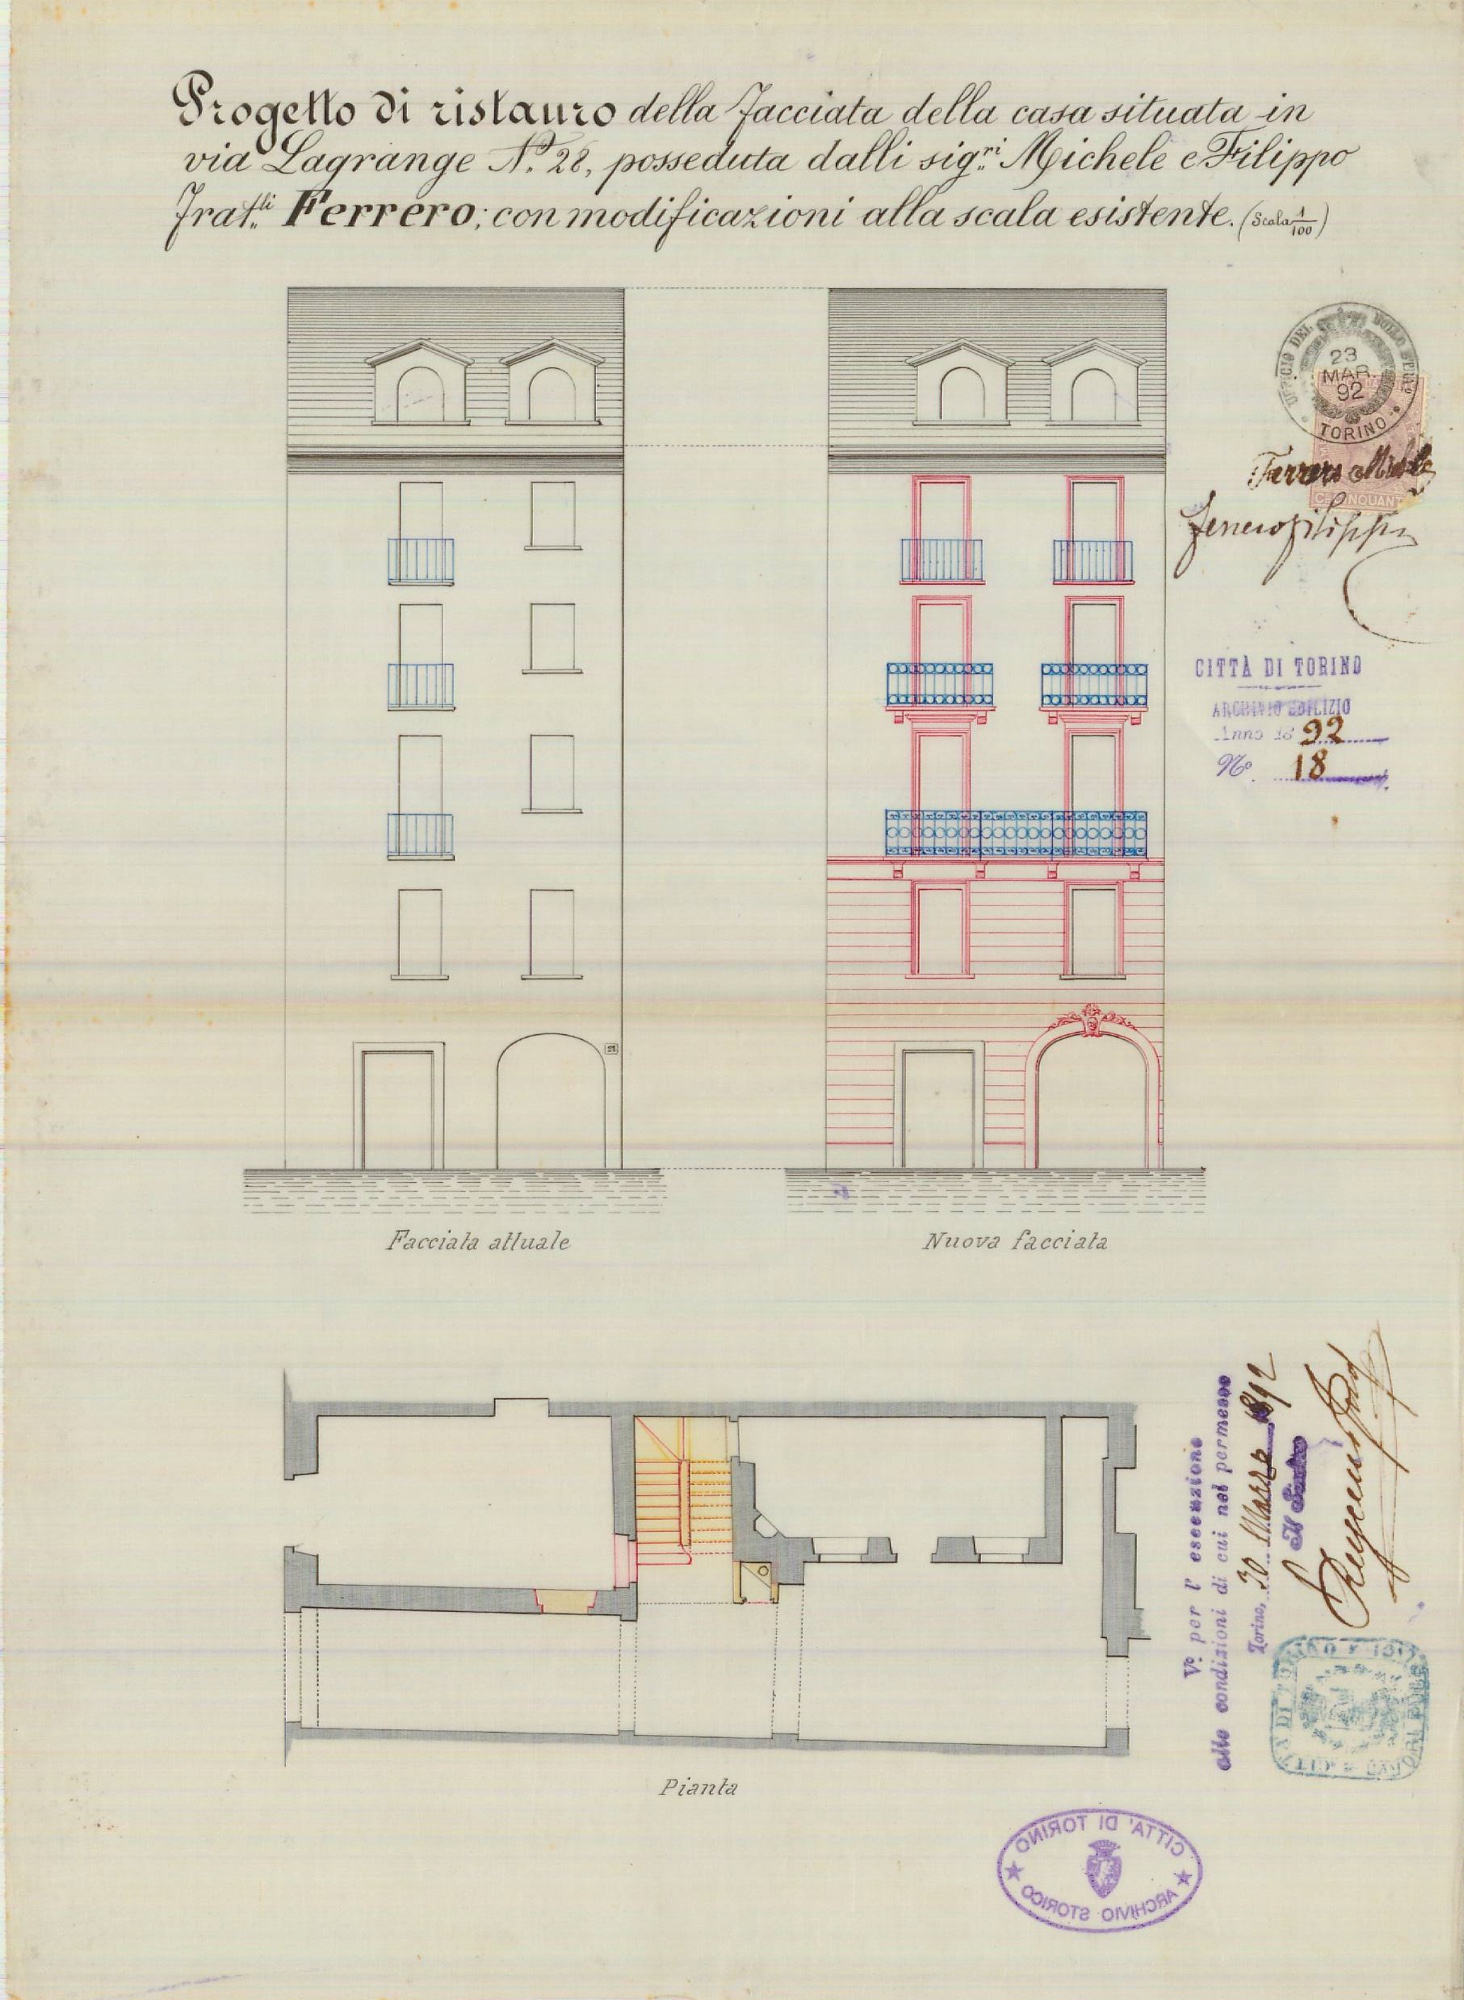 Progetto di ristauro della facciata della casa situata in
via Lagrange N.º 28, posseduta dalli sig.ri Michele e Filippo
Frat.lli Ferrero; con modificazioni alla scala esistente. (Scala 1/100)
UFFICIO DEL BOLLO STRAO
23
MAR.
92
TORINO
Ferrero Michele
CINQUANT
Ferrero Filippo
CITTÀ DI TORINO
ARCHIVIO EDILIZIO
Anno 18 92
No. 18
Facciata attuale
Nuova facciata
Vº per l'esecuzione
alle condizioni di cui nel permesso
Torino, 30 Marzo 1892
Il Sindaco
Pianta
CITTA' DI TORINO
ARCHIVIO STORICO